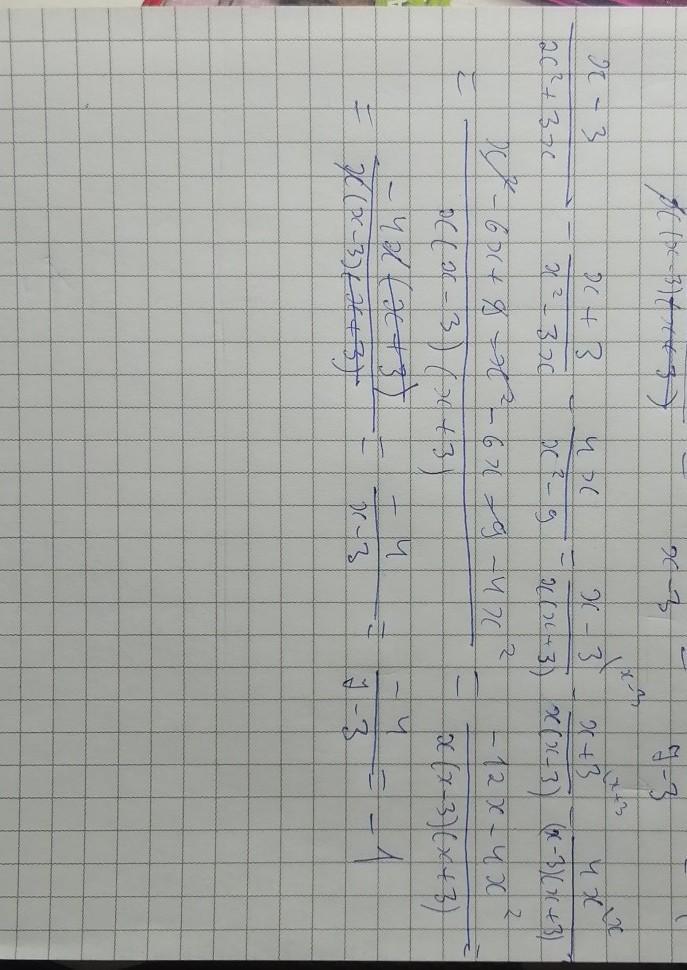 x(x-3)(x+3) = x-3 = y-3
(x-3)/(x²+3x) - (x+3)/(x²-3x) - 4x/(x²-9) = (x-3)/(x(x+3)) (x-3 - (x+3)/(x(x-3)) (x+3 - 4x/((x-3)(x+3)) (x
= (x²-6x+9-x²-6x-9-4x²)/(x(x-3)(x+3)) = (-12x-4x²)/(x(x-3)(x+3)) =
= (-4x(x+3))/(x(x-3)(x+3)) = (-4)/(x-3) = (-4)/(y-3) = -1